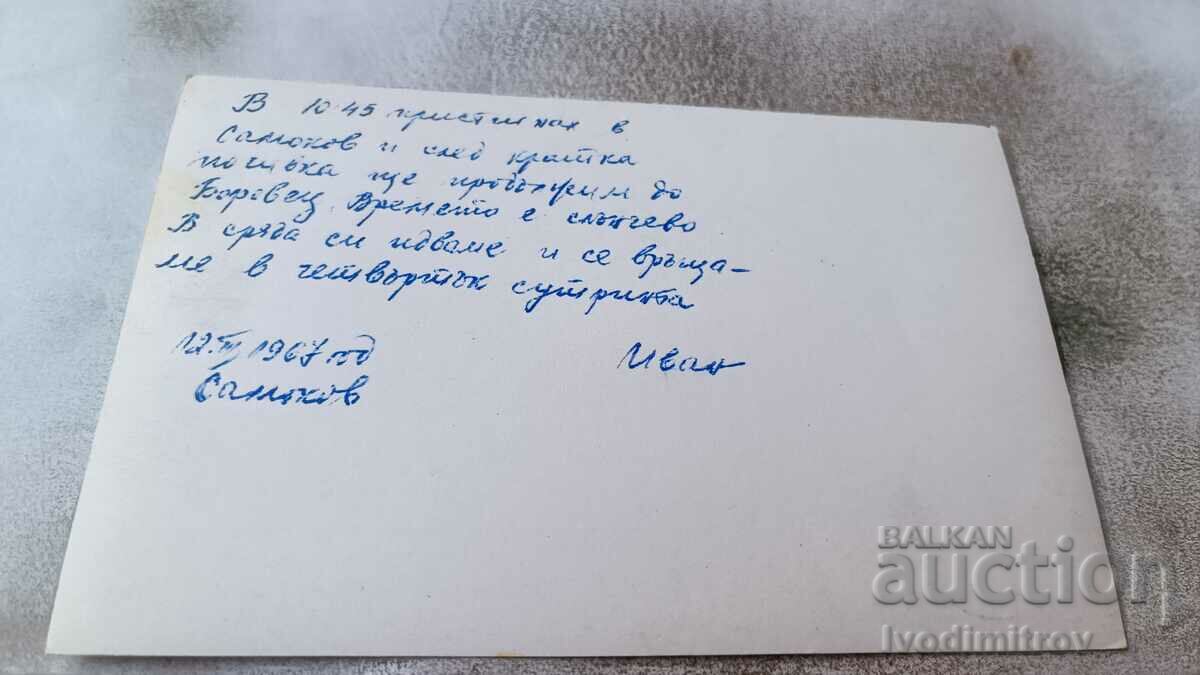 В 10.45 пристигнах в
Самоков и след кратка
почивка ще продължим до
Боровец. Времето е слънчево
В сряда си идваме и се връща-
ме в четвъртък сутринта
12.III 1967 год
Иван
Самоков
BALKAN
auction
Ivodimitrov